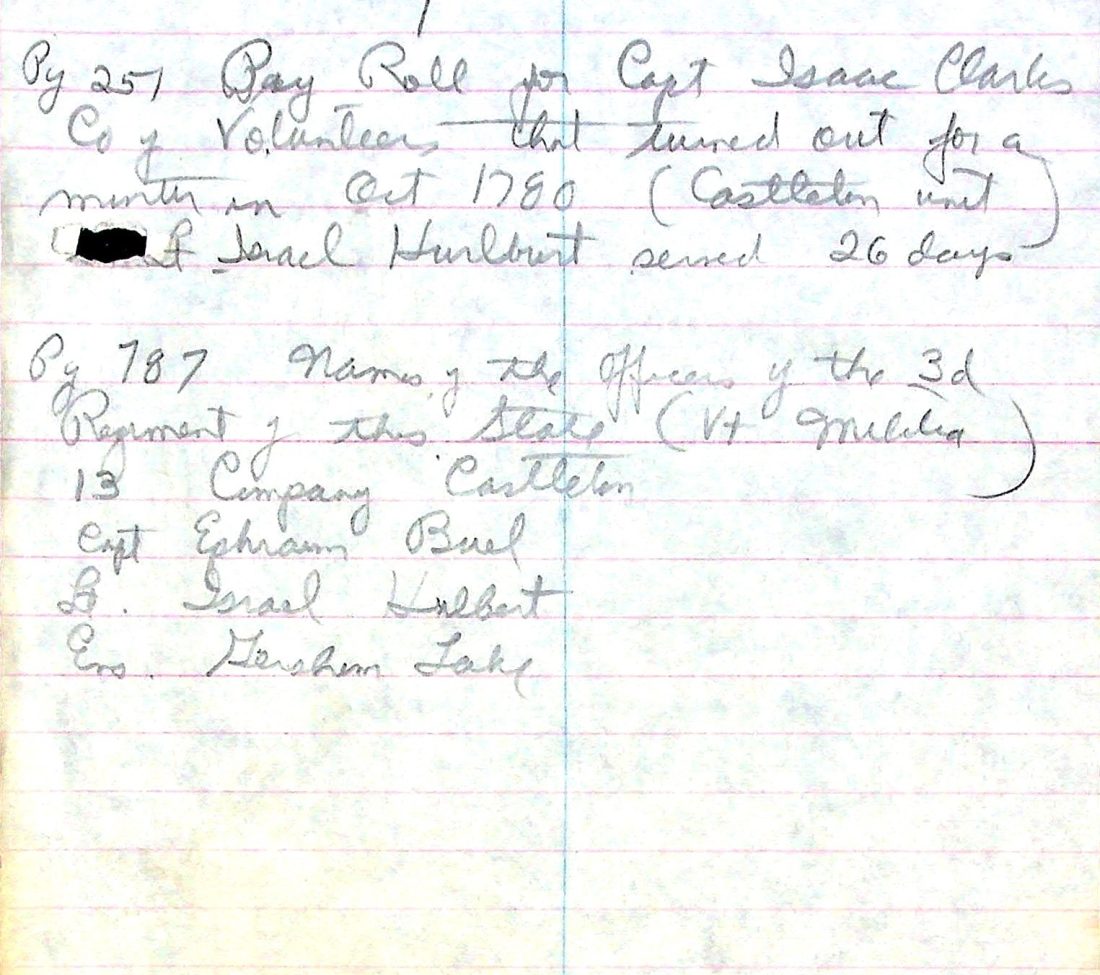 Pg 251 Pay Roll for Capt Isaac Clarks
Co of Volunteers that turned out for a
month in Oct 1780 (Castleton unit)
Lt Israel Hurlburt served 26 days
Pg 787 Names of the Officers of the 3d
Regiment of this State (Vt Militia)
13 Company Castleton
Capt Ephraim Buel
Lt. Israel Hulbert
Ens. Gershem Lake